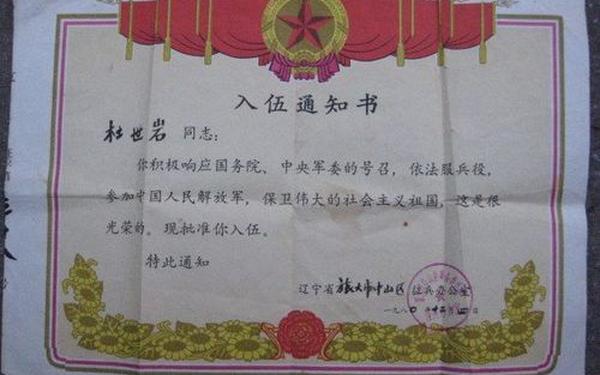 入伍通知书
杜世岩 同志:
你积极响应国务院、中央军委的号召，依法服兵役，
参加中国人民解放军，保卫伟大的社会主义祖国，这是很
光荣的。现批准你入伍。
特此通知
辽宁省旅大市中山区 征兵办公室
一九八〇年十二月 日